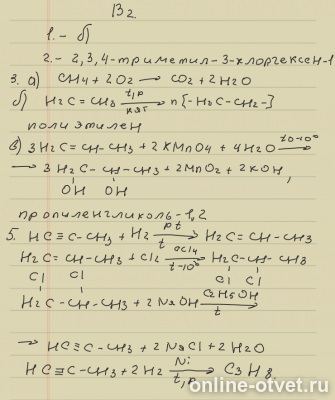 B2.
1. - б)
2. - 2,3,4-триметил-3-хлоргексен-1
3. а) CH4 + 2O2 → CO2 + 2H2O
б) H2C = CH3 t,p кат → n[-H2C-CH2-]
полиэтилен
в) 3H2C = CH-CH3 + 2KMnO4 + 4H2O t0-10° →
→ 3H2C - CH-CH3 + 2MnO2 + 2KOH,
OH OH
пропиленгликоль-1,2
5. HC≡C-CH3 + H2 Pt t → H2C=CH-CH3
H2C=CH-CH3 + Cl2 CCl4 t-10° → H2C-CH-CH3
Cl Cl
Cl Cl
H2C-CH-CH3 + 2NaOH C2H5OH t →
→ HC≡C-CH3 + 2NaCl + 2H2O
HC≡C-CH3 + 2H2 Ni t,p → C3H8.
online-otvet.ru